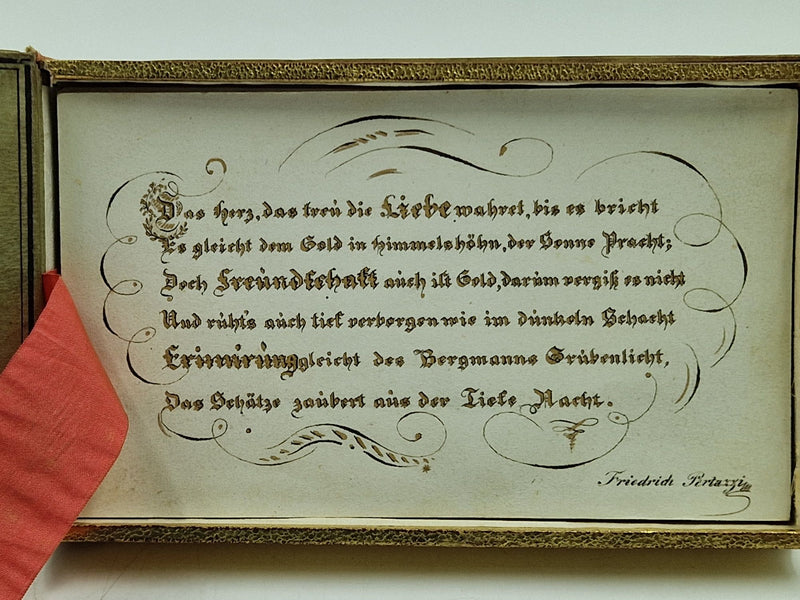 Das Herz, das treü die Liebe wahret, bis es bricht
Es gleicht dem Gold in Himmelshöhn, der Sonne Pracht;
Doch Freündschaft aüch ist Gold, darüm vergiß es nicht
Und rüht's aüch tief verborgen wie im dünkeln Schacht
Erinnrüng gleicht des Bergmanns Grübenlicht,
Das Schätze zaübert aüs der Tiefe Nacht.
Friedrich Pertazzi